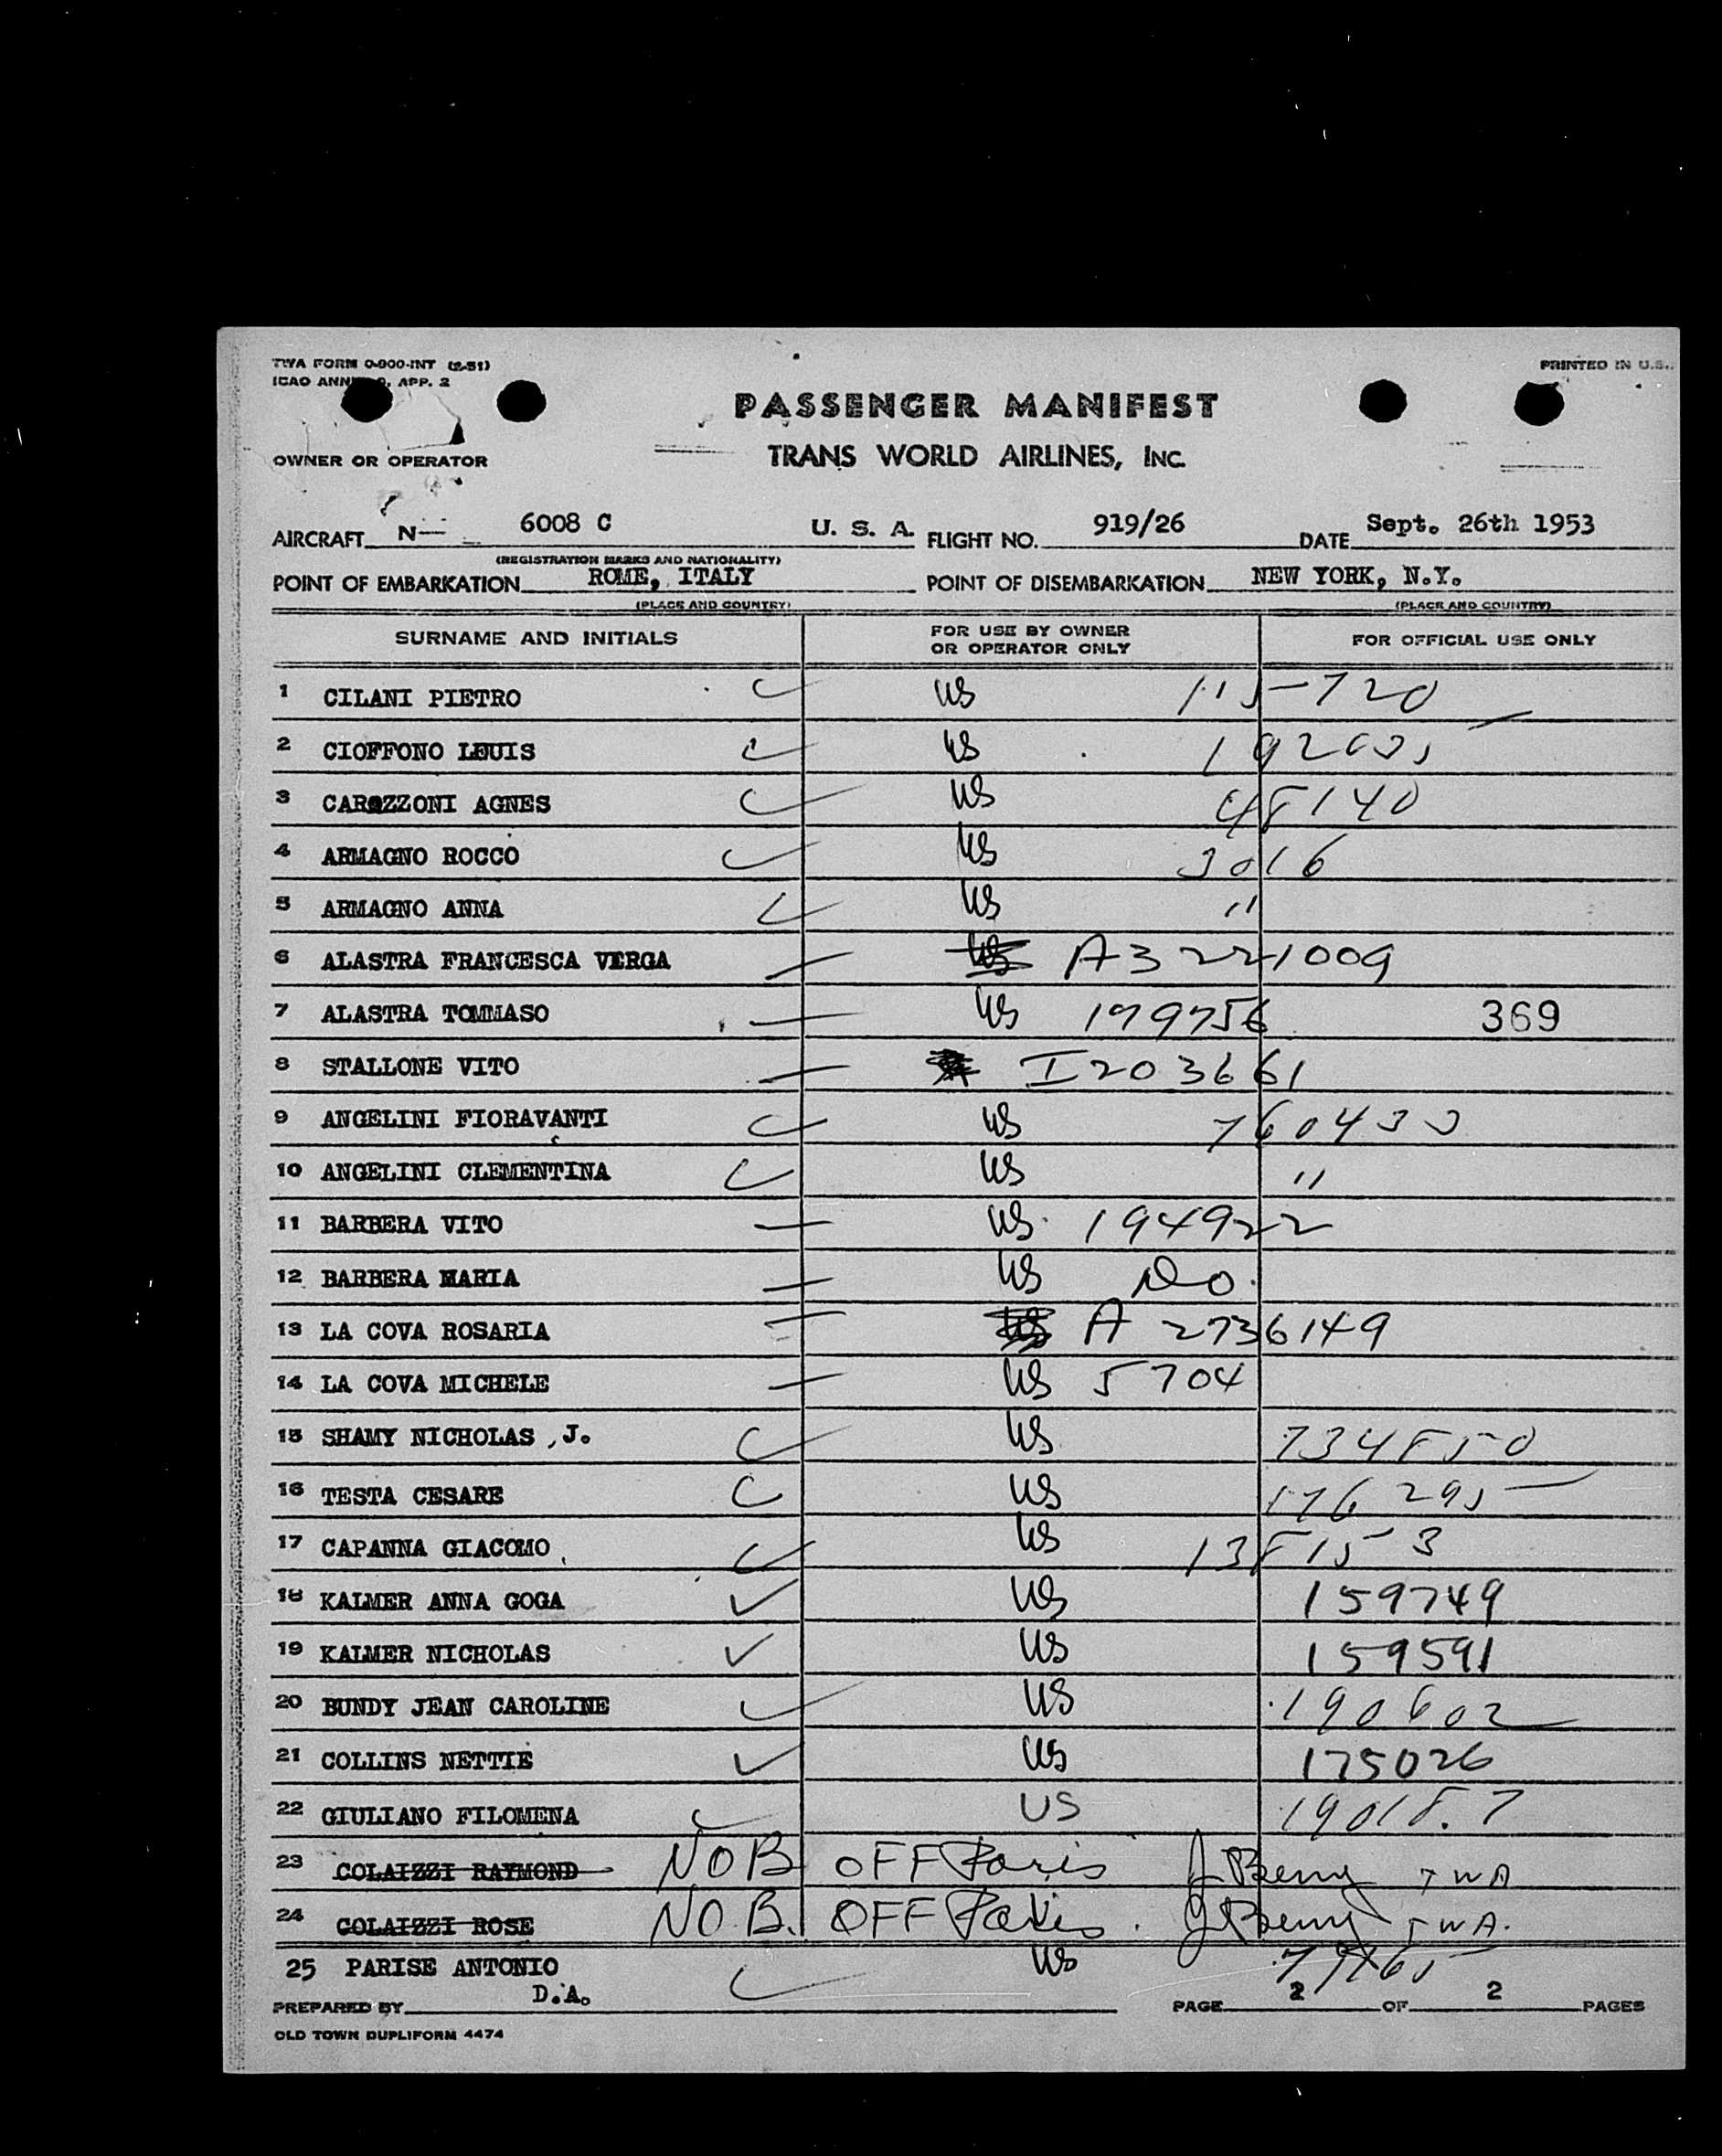 TWA FORM O-900-INT (2-51)
PRINTED IN U.S.
ICAO ANNEX 9, APP. 2
PASSENGER MANIFEST
OWNER OR OPERATOR
TRANS WORLD AIRLINES, INC.
AIRCRAFT N— 6008 C U. S. A. FLIGHT NO. 919/26 DATE Sept. 26th 1953
(REGISTRATION MARKS AND NATIONALITY)
POINT OF EMBARKATION ROME, ITALY POINT OF DISEMBARKATION NEW YORK, N.Y.
(PLACE AND COUNTRY) (PLACE AND COUNTRY)
SURNAME AND INITIALS FOR USE BY OWNER OR OPERATOR ONLY FOR OFFICIAL USE ONLY
1 CILANI PIETRO US 115720
2 CIOFFONO LOUIS US
3 CAROZZONI AGNES US 48140
4 ARMAGNO ROCCO US 3016
5 ARMAGNO ANNA US "
6 ALASTRA FRANCESCA VERGA US A3221009
7 ALASTRA TOMMASO US 179756 369
8 STALLONE VITO I203661
9 ANGELINI FIORAVANTI US 760433
10 ANGELINI CLEMENTINA US "
11 BARBERA VITO US 194922
12 BARBERA MARIA US Do.
13 LA COVA ROSARIA US A 2736149
14 LA COVA MICHELE US 5704
15 SHAMY NICHOLAS, J. US 734850
16 TESTA CESARE US 176295
17 CAPANNA GIACOMO US 138153
18 KALMER ANNA GOGA US 159749
19 KALMER NICHOLAS US 159591
20 BUNDY JEAN CAROLINE US 190602
21 COLLINS NETTIE US 175026
22 GIULIANO FILOMENA US 190187
23 COLAIZZI RAYMOND NOB OFF Paris J Berry TWA
24 COLAIZZI ROSE NO.B. OFF Paris. J Berry TWA.
25 PARISE ANTONIO US
D.A.
PREPARED BY PAGE 2 OF 2 PAGES
OLD TOWN DUPLIFORM 4474